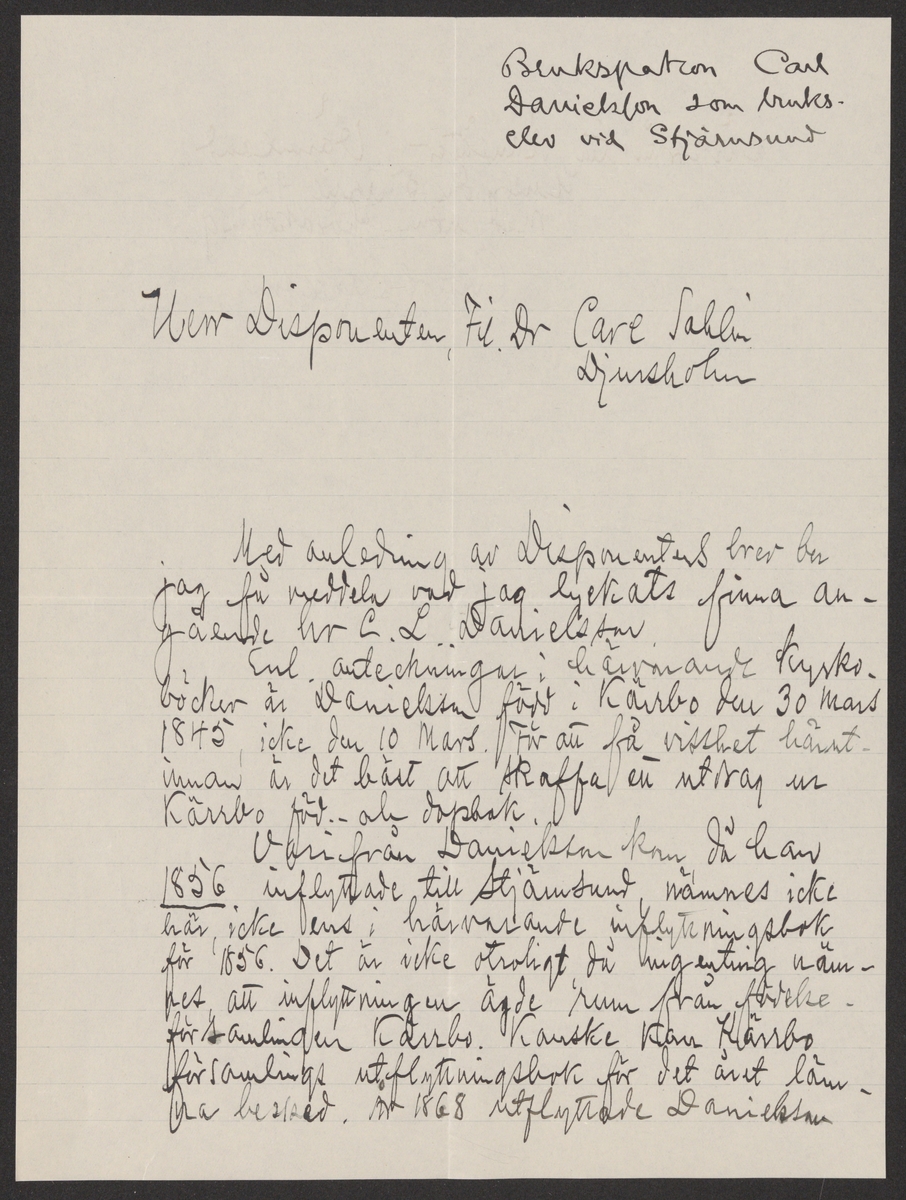 Brukspatron Carl
Danielsson som bruks-
elev vid Stjärnsund
Herr Disponenten, Fil. Dr Carl Sahlin
Djursholm
Med anledning av Disponentens brev ber
jag få meddela vad jag lyckats finna an-
gående hr C. L. Danielsson.
Enl. anteckningar i härvarande kyrko-
böcker är Danielsson född i Kärrbo den 30 Mars
1845, icke den 10 Mars. För att få visshet härut-
innan är det bäst att skaffa ett utdrag ur
Kärrbo föd.- och dopbok.
Varifrån Danielsson kom, då han
1856 inflyttade till Stjärnsund, nämnes icke
här, icke ens i härvarande inflyttningsbok
för 1856. Det är icke otroligt, då ingenting näm-
nes, att inflyttningen ägde rum från födelse-
församlingen Kärrbo. Kanske kan Kärrbo
församlings utflyttningsbok för det året läm-
na besked. År 1868 utflyttade Danielsson